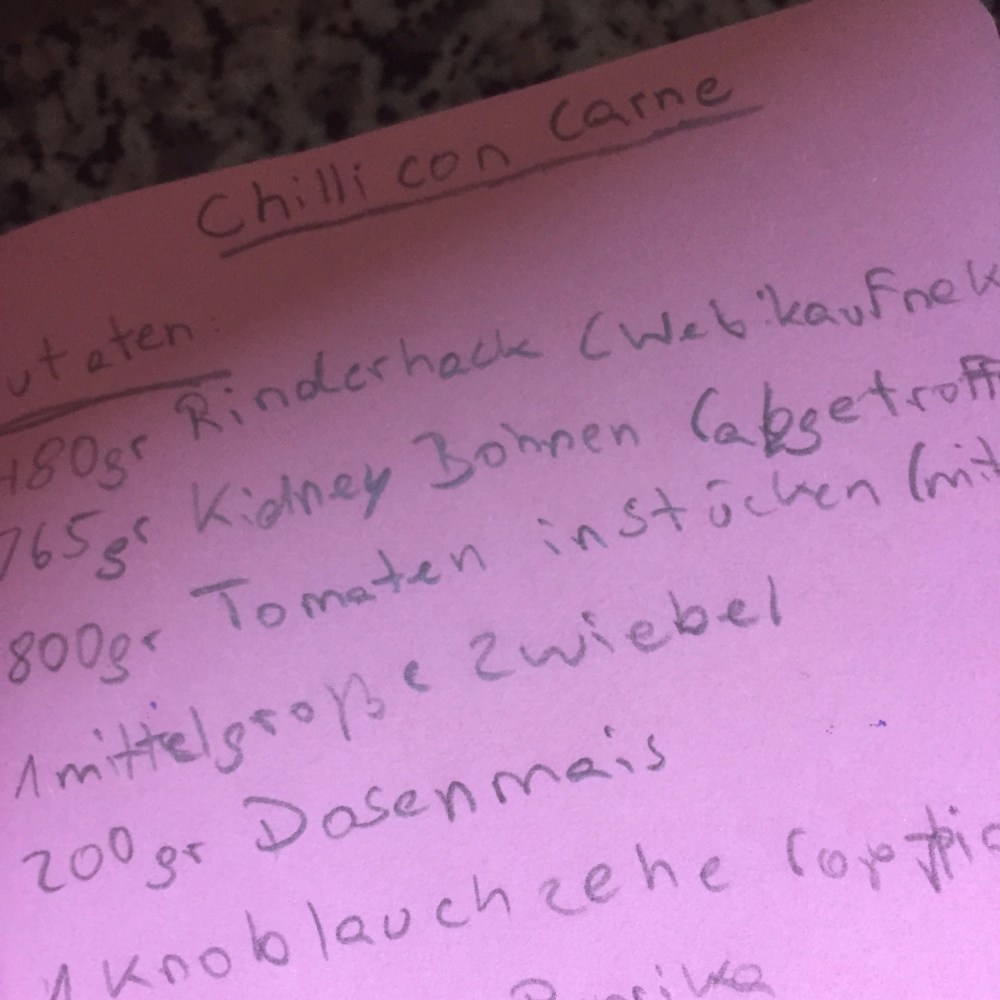 Chilli con Carne
utaten:
480gr Rinderhack (Web:kaufnek
765gr Kidney Bohnen (abgetroff
800gr Tomaten in stücken (mit
1 mittelgroße Zwiebel
200gr Dosenmais
1 Knoblauchzehe (optio
Paprika